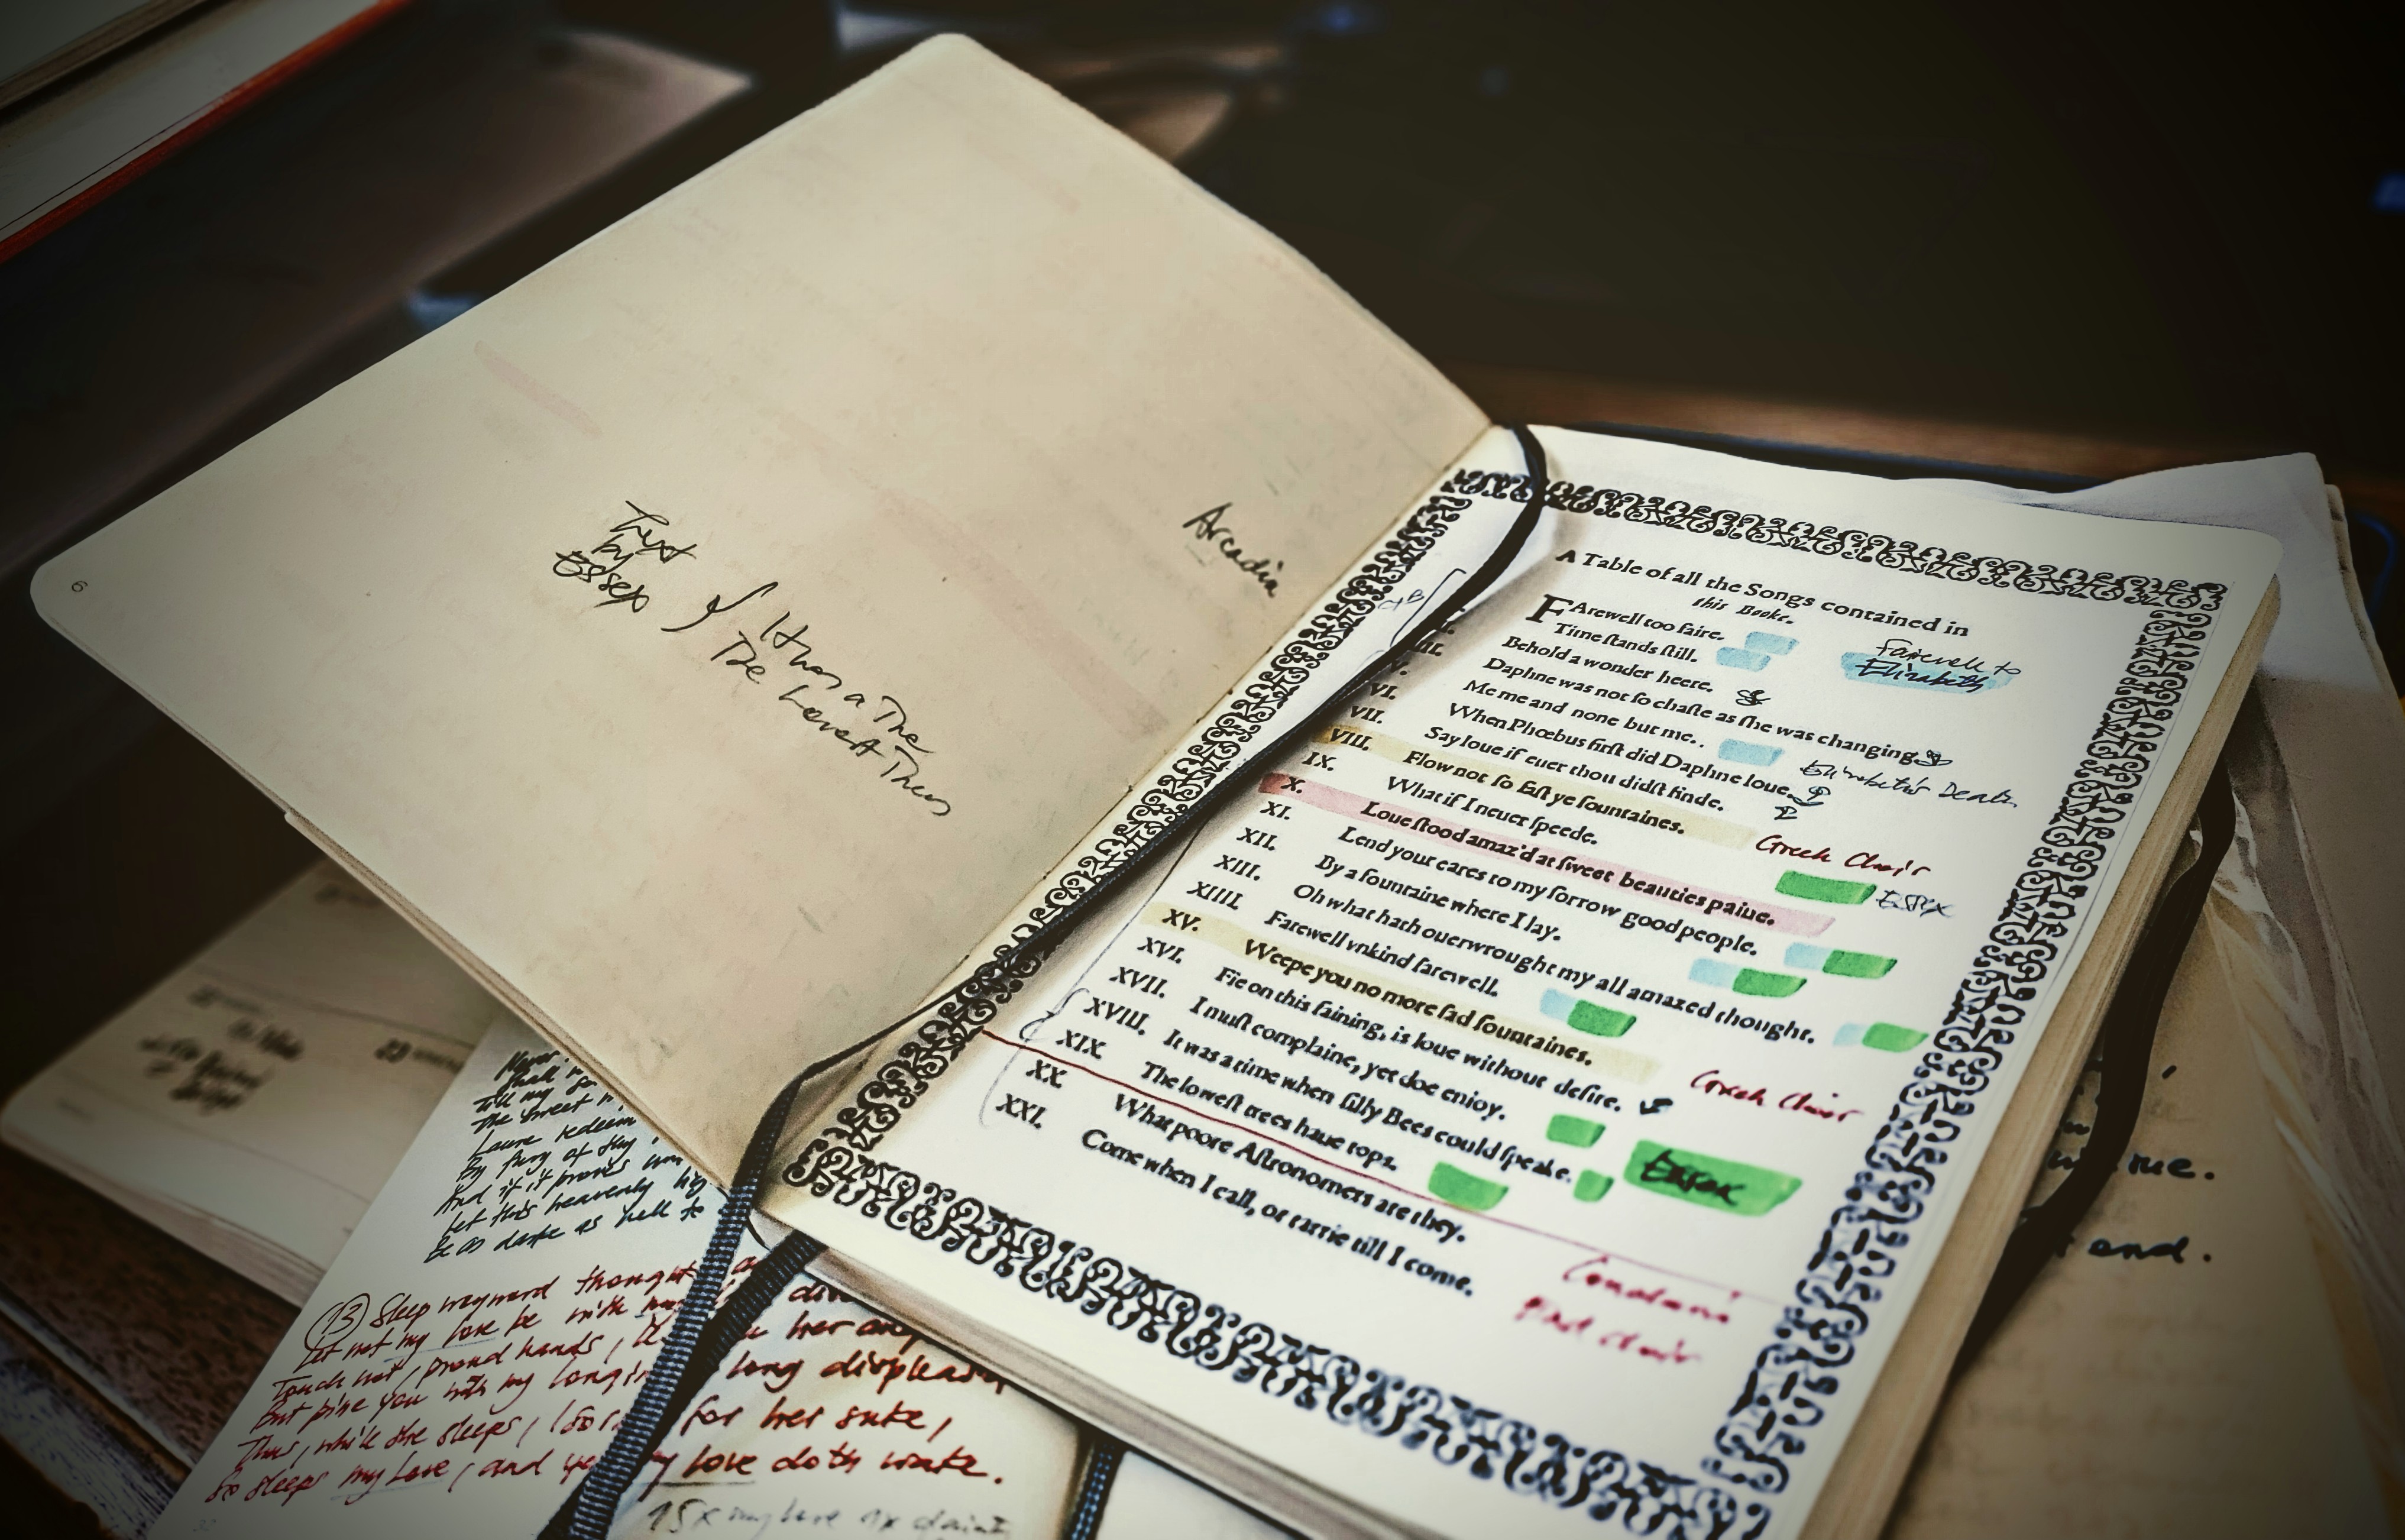 6
Text
by
Essex
It was a Time
The Lowest Trees
Arcadia
A Table of all the Songs contained in
this Booke.
FArewell too faire.
Time ſtands ſtill.
Behold a wonder heere.
Daphne was not ſo chaſte as ſhe was changing.
V. Me me and none but me.
VI. When Phœbus firſt did Daphne loue.
VII. Say loue if euer thou didſt finde.
VIII. Flow not ſo faſt ye fountaines.
IX. What if I neuer ſpeede.
X. Loue ſtood amaz'd at ſweet beauties paine.
XI. Lend your eares to my ſorrow good people.
XII. By a fountaine where I lay.
XIII. Oh what hath ouerwrought my all amazed thought.
XIIII. Farewell vnkind farewell.
XV. Weepe you no more ſad fountaines.
XVI. Fie on this faining, is loue without deſire.
XVII. I muſt complaine, yet doe enjoy.
XVIII. It was a time when ſilly Bees could ſpeake.
XIX. The loweſt trees haue tops.
XX. What poore Aſtronomers are they.
XXI. Come when I call, or tarrie till I come.
Farewell to
Elizabeth
Elizabeth's Death
Greek Choir
Essex
Greek Choir
Essex
23
Shall
Till my
the sweet
Laura redeem
By fury of
And if it proves
Let this heavenly
Be as darke as hell to
(13) Sleep wayward thought
Let not my love be with
Touch not, proud hands,
her
But pine you with my longin long displeasu
Thus, while she sleeps, I for her sake,
So sleeps my Love, and yet my love doth wake.
15x my love 1x
me.
end.